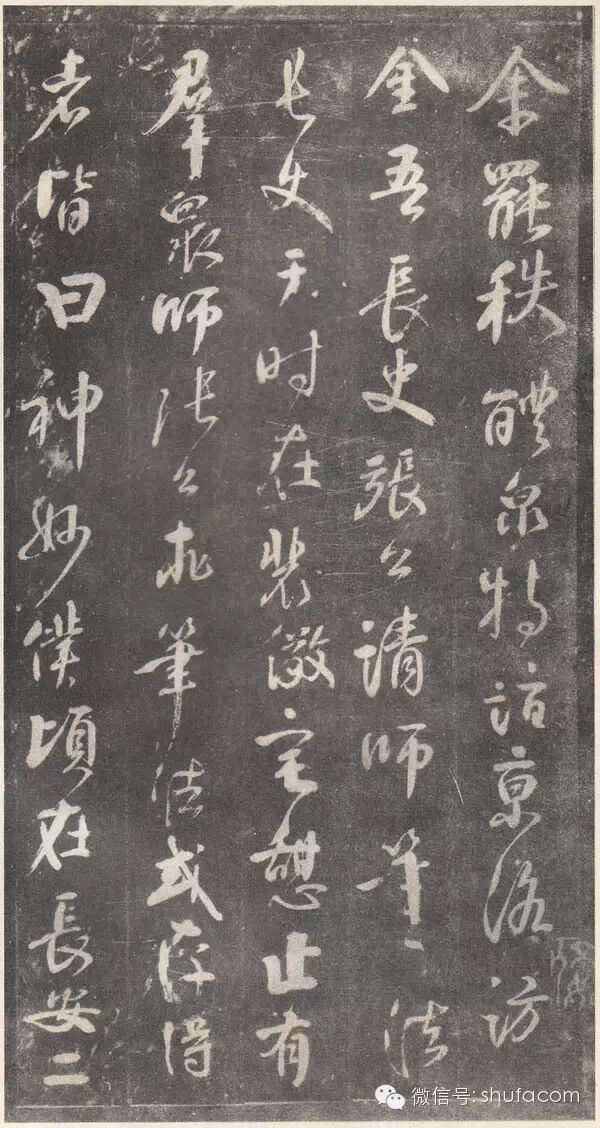 余罷秩醴泉特詣京洛訪
金吾長史張公請師筆法
長史于时在裴儆宅憩止有
羣眾師張公求筆法或存得
者皆曰神妙僕頃在長安二
微信号: shufacom